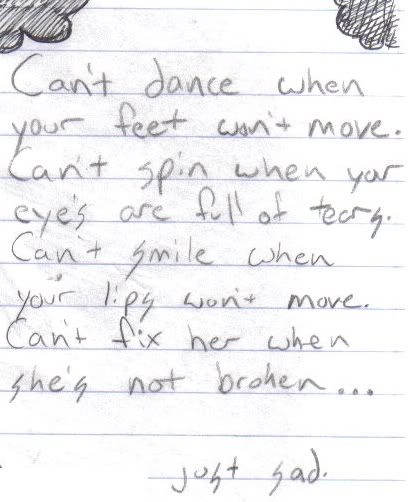 Can't dance when
your feet won't move.
Can't spin when your
eye's are full of tears.
Can't smile when
your lips won't move.
Can't fix her when
she's not broken...
just sad.